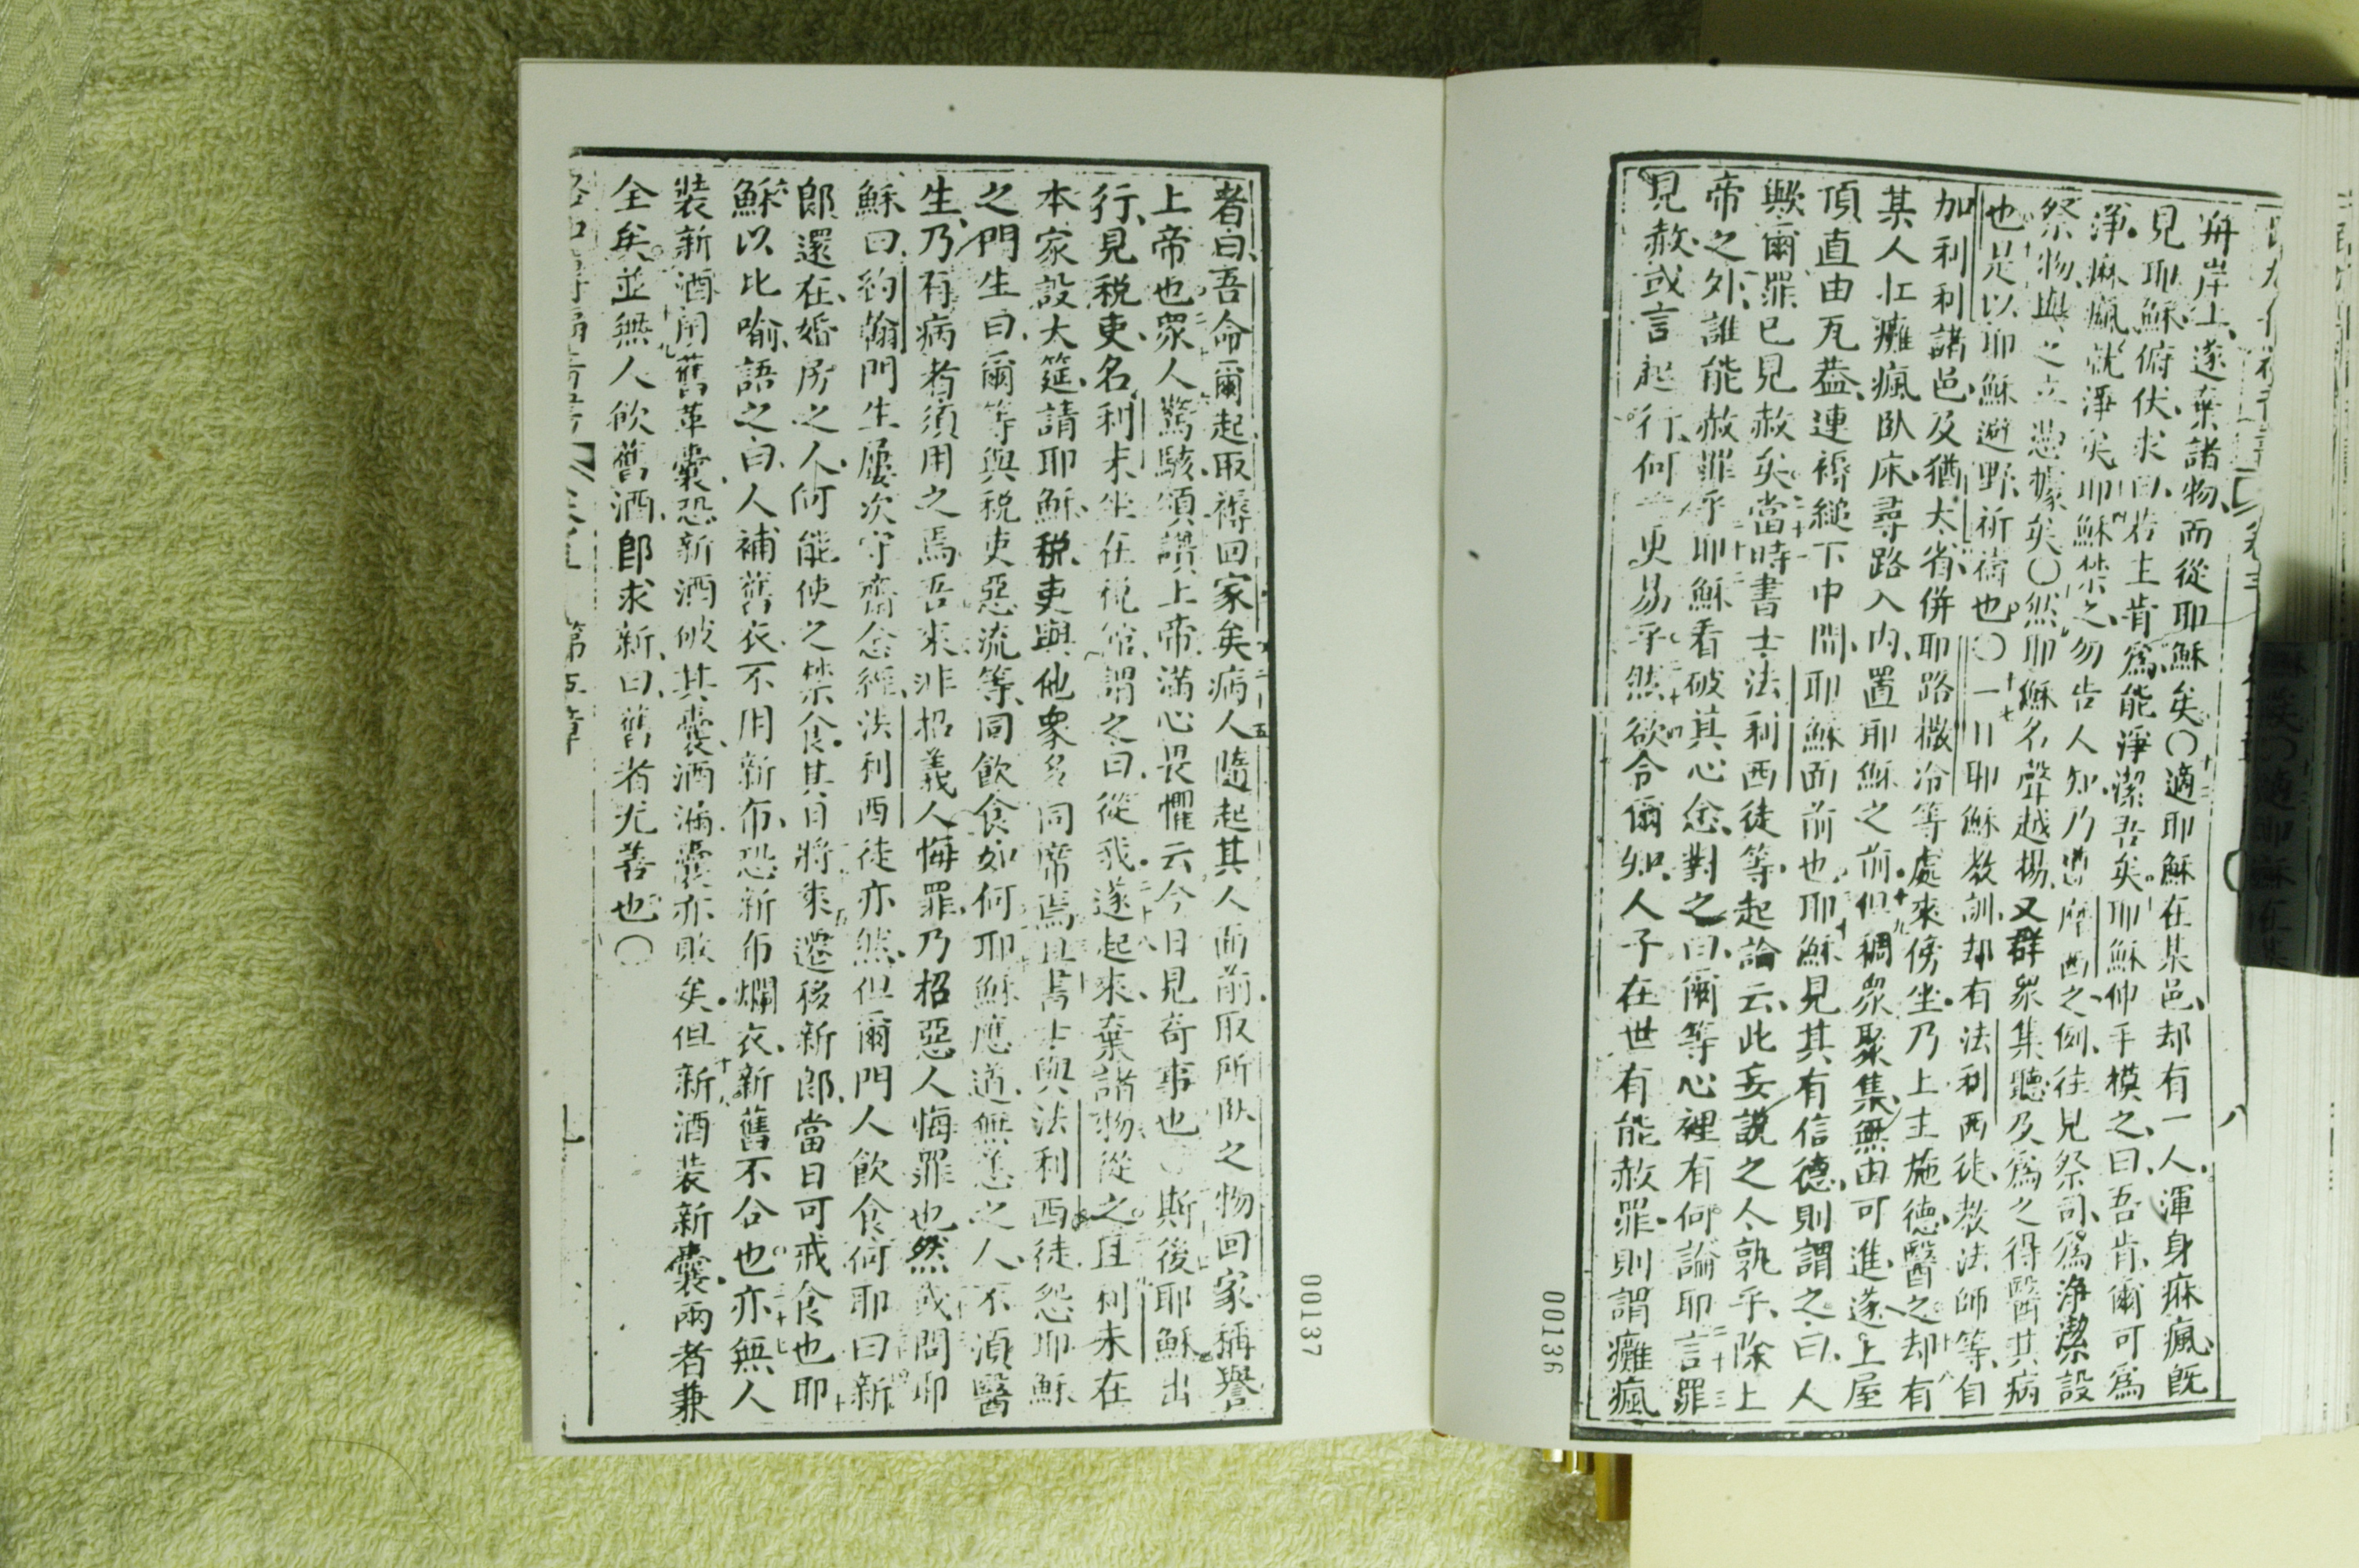 舟岸上、遂棄諸物、而從耶穌矣〇適耶穌在某邑、却有一人、渾身痳瘋、旣
見耶穌、俯伏求曰、若主肯爲能淨潔吾矣、耶穌伸手模之、曰、吾肯、爾可爲
淨、痳瘋就淨矣、耶穌禁之勿告人知、乃遵摩西之例、往見祭司、爲淨潔設
祭物、與之立憑據矣〇然耶穌名聲越揚、又群衆集聽、及爲之得醫其病
也、是以耶穌避野、祈禱也〇一日耶穌教訓、却有法利西徒、教法師等、自
加利利諸邑、及猶太省、併耶路撒冷等處來傍坐、乃上主施德、醫之、却有
某人扛癱瘋臥床、尋路入內、置耶穌之前、但稠衆聚集、無由可進、遂上屋
頂、直由瓦葢、連褥縋下中間、耶穌面前也、耶穌見其有信德、則謂之曰、人
歟、爾罪已見赦矣、當時書士法利西徒等、起論云、此妄説之人孰乎、除上
帝之外、誰能赦罪乎、耶穌看破其心念、對之曰、爾等心裡有何論耶、言罪
見赦、或言起行、何者更易乎、然欲令爾知、人子在世有能赦罪、則謂癱瘋
八
00136
者曰、吾命爾起、取褥回家矣、病人隨起其人面前、取所臥之物回家、稱譽
上帝也、衆人驚駭、頌讚上帝、滿心畏懼、云今日見奇事也〇斯後耶穌出
行、見税吏名利未坐在税館、謂之曰、從我、遂起來、棄諸物、從之、且利未在
本家設大筵、請耶穌、税吏與他衆多同席焉、且書士與法利西徒怨耶穌
之門生曰、爾等與税吏惡流等、同飲食如何、耶穌應道、無恙之人、不須醫
生、乃有病者須用之焉、吾來非招義人悔罪、乃招惡人悔罪也、然或問耶
穌曰、約翰門生屢次守齋念經、法利西徒亦然、但爾門人飲食何耶、曰新
郎還在、婚房之人、何能使之禁食、其日將來、遷移新郎、當日可戒食也、耶
穌以比喻語之曰、人補舊衣、不用新布、恐新布爛衣、新舊不合也、亦無人
裝新酒用舊革囊、恐新酒破其囊、酒滿囊亦敗矣、但新酒裝新囊、兩者兼
全矣、並無人飲舊酒、郎求新、曰、舊者尤善也〇
第五章
00137